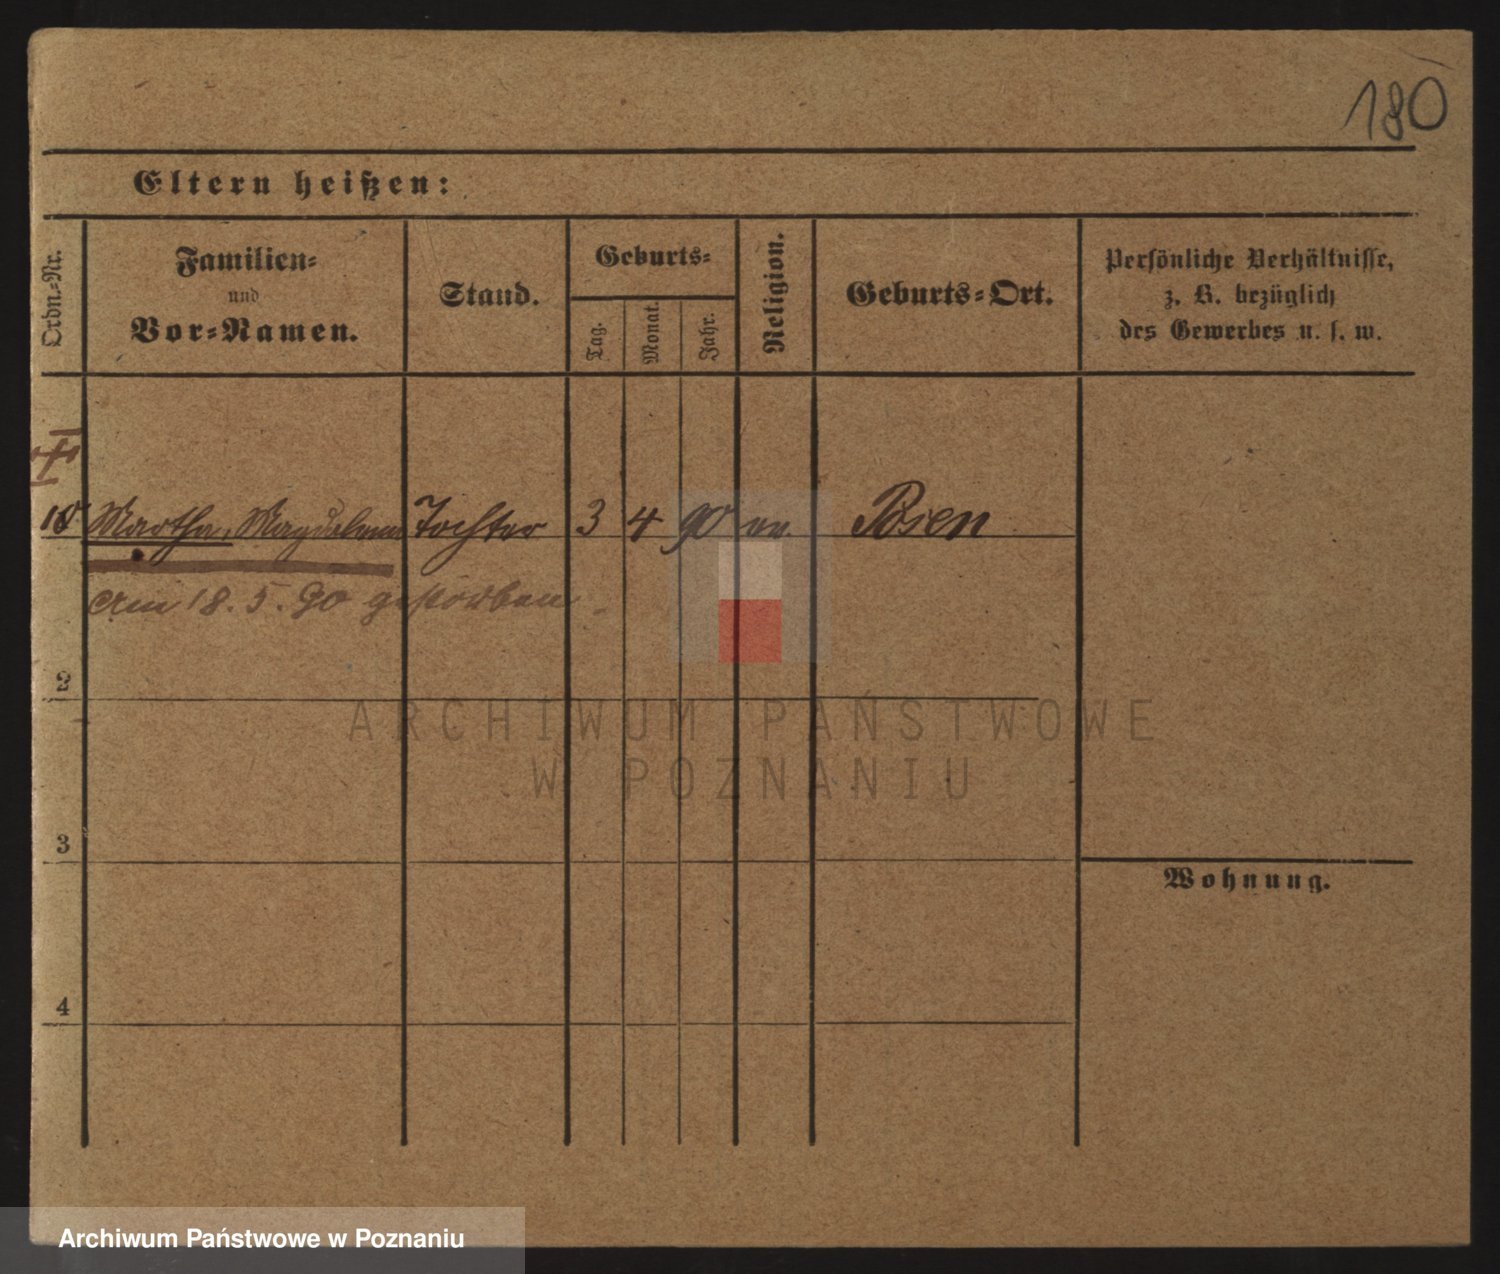 180
Eltern heißen:
Ordn.-Nr.
Familien-
und
Vor-Namen.
Stand.
Geburts-
Tag.
Monat.
Jahr.
Religion.
Geburts-Ort.
Persönliche Verhältnisse,
z. B. bezüglich
des Gewerbes u. s. w.
10 Martha, Magdalena Tochter 3 4 90 ev. Posen
am 18. 5. 90 gestorben.
2
ARCHIWUM PAŃSTWOWE
W POZNANIU
3
Wohnung.
4
Archiwum Państwowe w Poznaniu